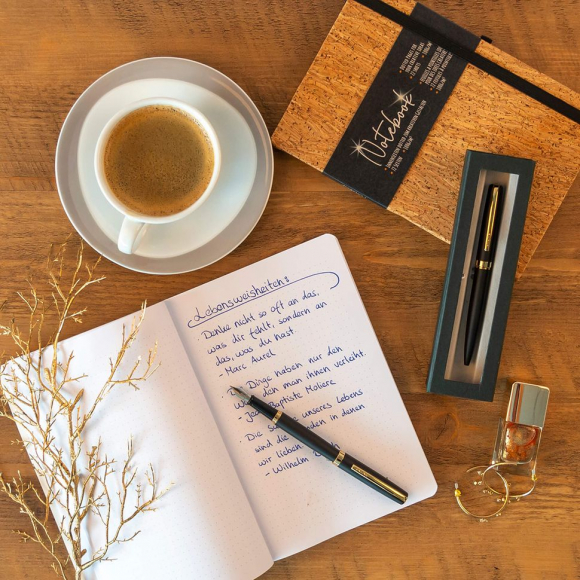 Notebook
Lebensweisheiten:
· Denke nicht so oft an das,
was dir fehlt, sondern an
das, was du hast.
- Marc Aurel
· Dinge haben nur den
den man ihnen verleiht.
Baptiste Moliere
· Die unseres Lebens
sind die in denen
wir lieben.
- Wilhelm